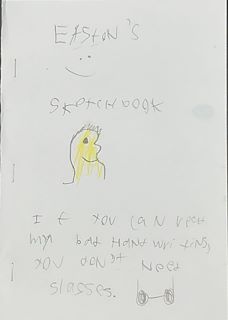 EASTON'S
SKETCHBOOK
IF YOU CAN REED
MY BAD HAND WRITING,
YOU DON'T NEED
GLASSES.